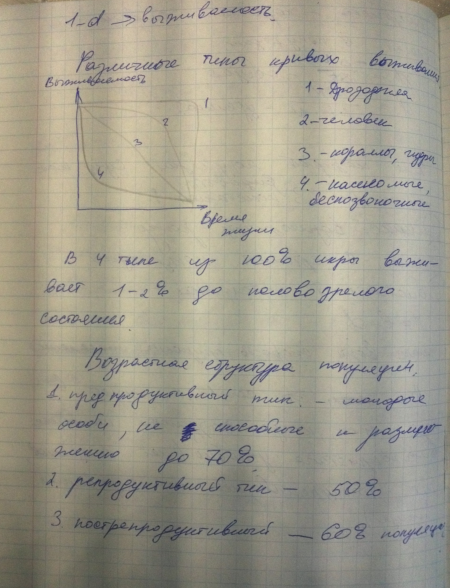 1-d → выживаемость.
Различные типы кривых выживания
Выживаемость
1 - Дрозофила
1
2
2 - человек
3
3. - кораллы, гидры
4
4. - насекомые,
беспозвоночные
Время
жизни
В 4 типе из 100% икры выжи-
вает 1-2% до половозрелого
состояния.
Возрастная структура популяции.
1. предпродуктивный тип. - молодые
особи, не способные к размно
жению до 70%
2. репродуктивный тип - 50%
3. пострепродуктивный — 60% популяц